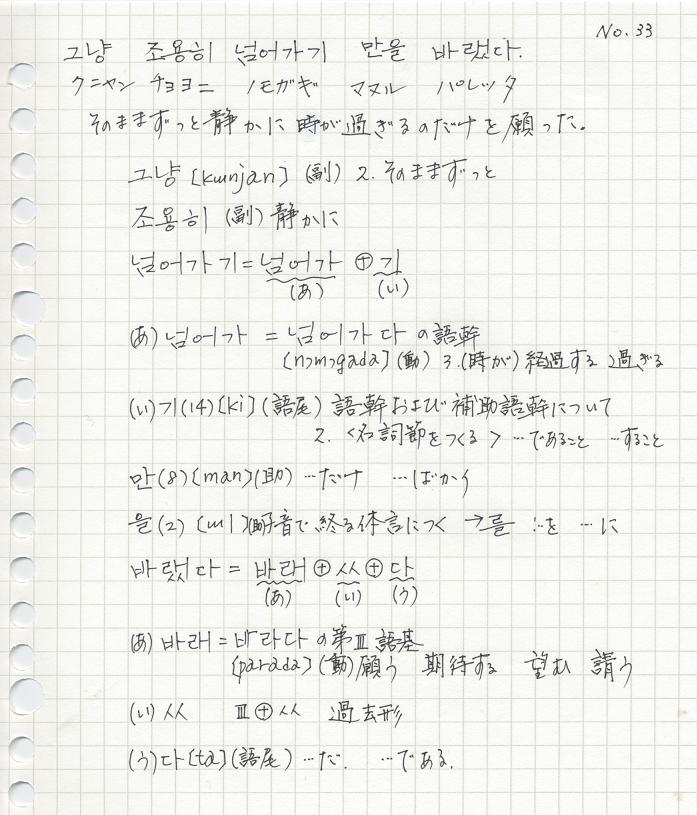 No. 33
그냥 조용히 넘어가기 만을 바랬다.
クニャン チョヨニ ノモガギ マヌル パレッタ
そのままずっと静かに時が過ぎるのだけを願った。
그냥 [kɯnjan] (副) 2. そのままずっと
조용히 (副) 静かに
넘어가기 = 넘어가 ⊕ 기
(あ) (い)
(あ) 넘어가 = 넘어가다 の語幹
[nɔmɔgada] (動) 3. (時が) 経過する 過ぎる
(い) 기 (14) [ki] (語尾) 語幹および補助語幹について
2. <名詞節をつくる> …であること …すること
만 (8) [man] (助) …だけ …ばかり
을 (2) [ɯl] 子音で終る体言につく → 를 …を …に
바랬다 = 바래 ⊕ ㅆ ⊕ 다
(あ) (い) (う)
(あ) 바래 = 바라다 の第Ⅲ語基
[parada] (動) 願う 期待する 望む 請う
(い) ㅆ Ⅲ⊕ㅆ 過去形
(う) 다 [ta] (語尾) …だ. …である.